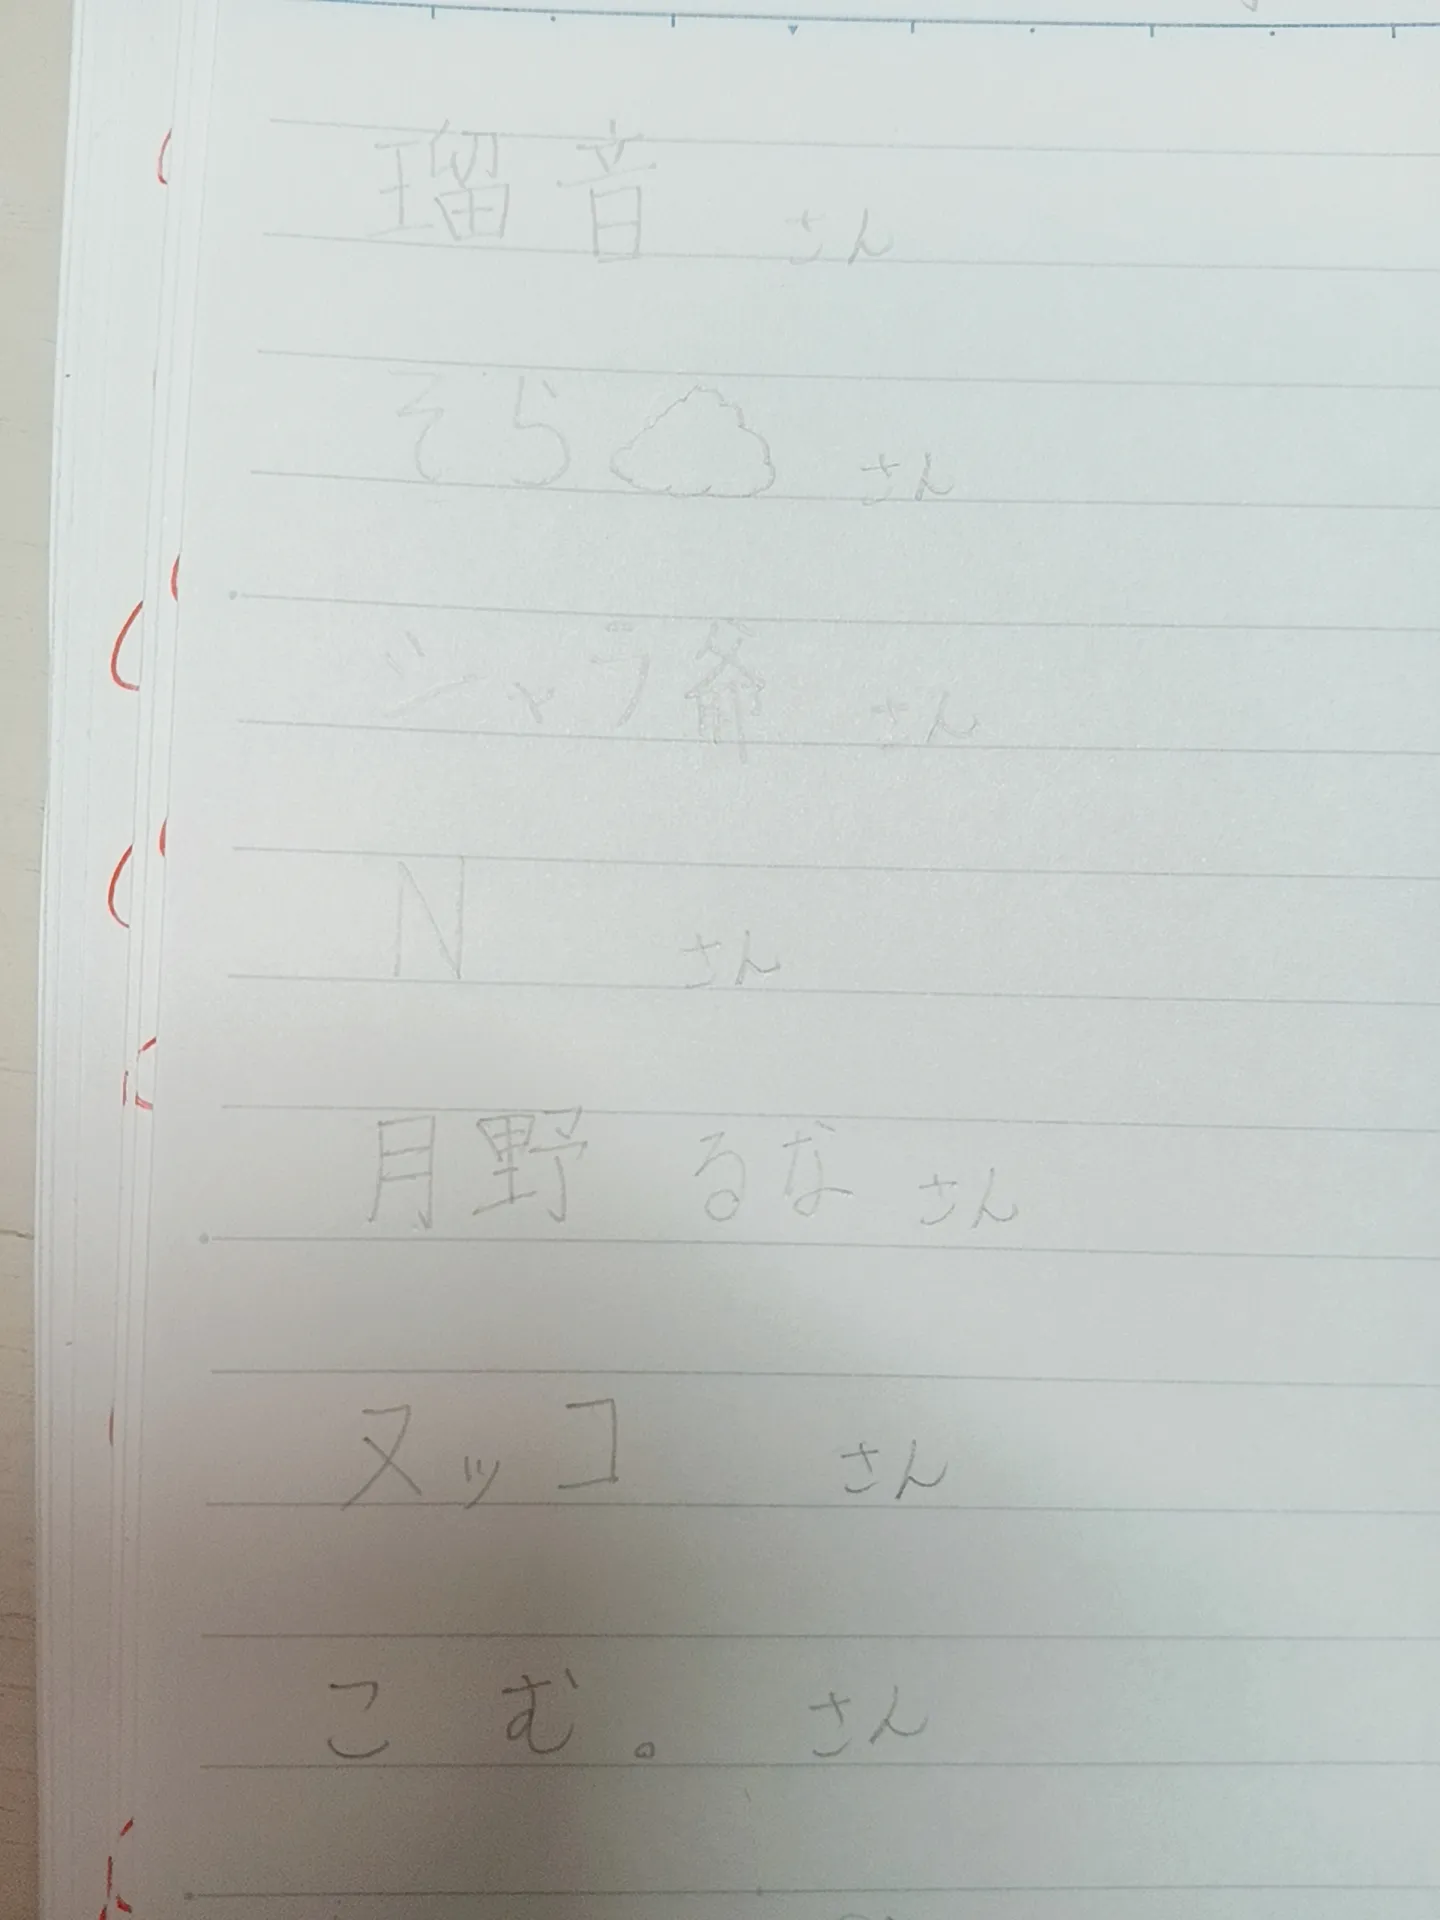 瑠音 さん
そら さん
ジャブ爺 さん
N さん
月野 るな さん
ヌッコ さん
こむ。 さん